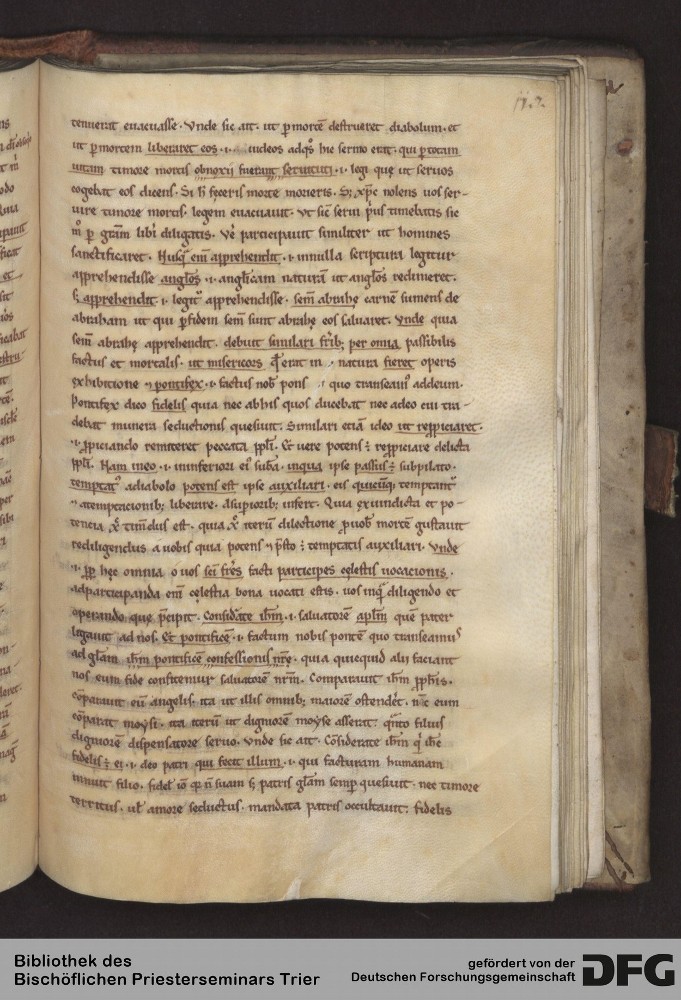 113.
tenuerat euacuasse. Vnde sic ait. ut p̄ mortē destrueret diabolum. et
ut p̄ mortem liberaret eos .i. iudeos adq̊s hic sermo erat. qui p̄ totam
uitam timore mortis obnoxii fuerunt seruituti .i. legi que ut seruos
cogebat eos dicens. Si h̄ feceris morte morieris. S; xp̄c nolens uos ser-
uire timore mortis. legem euacuauit. Vt sic̄ serui p̍us timebatis sic
m̊ p̄ gr̄am liƀi diligatis. Ve̅ participauit similiter ut homines
sanctificaret. Nusq̄ em̄ apprehendit .i. innulla scriptura legitur
apprehendisse angl̄os .i. anglicam naturā ut angl̄os redimeret.
s̄ apprehendit .i. legit᷒ apprehendisse. sem̄ abrahę carnē sumens de
abraham ut qui p̄ fidem sem̄ sunt abrahę eos saluaret. Vnde quia
sem̄ abrahę apprehendit. debuit similari fr̄ib; per om̄ia passibilis
factus et mortalis. ut misericors fieret operis
exhibitione ⁊ pontifex .i. factus nob̄ pons quo transeam᷒ addeum.
Pontifex dico fidelis quia nec abhis quos ducebat nec adeo cui tra-
debat munera seductionis quesiuit. Similari etiā ideo ut repropiciaret.
remitteret peccata pp̄li. Et uere potens ē repropiciare delicta
pp̄li. Nam ineo .i. ininferiori ei᷒ sub̄a. inqua ipse passus ē subpilato.
temptat᷒ adiabolo potens est ipse auxiliari. eis quicūq; temptant᷑
⁊ atemptacionib; liberare. Quia ex uindicta et po-
tencia x̄ timēdus est. quia x̄ iterū dilectione p̄uob̄ mortē gustauit
rediligendus a uobis quia potens ⁊ p̄sto ē temptatis auxiliari. Vnde
.i. pp̄ hęc omnia o uos sc̄i fr̄es facti participes cęlestis uocacionis.
adparticipanda em̄ cęlestia bona uocati estis. uos inq̄ diligendo et
operando que p̄cipit. Considerate ih̄m .i. saluatorē apl̄m quē pater
ligauit ad nos. Et pontificē .i. factum nobis pontē quo transeamus
ad gl̄am ih̄m pontificē confessionis nr̄ę. quia quicquid alii faciant
nos eum fide confitemur saluatorē nr̄m. Comparauit ih̄m pp̄hetis.
cōparauit eū angelis. ita ut illis omnib; maiorē ostenderet. n̄c eum
cōparat moysi. ita iterū ut digniorē moyse asserat. quāto filius
digniorē dispensatore seruo. Vnde sic ait. Cōsiderate ih̄m q̍ ih̄c
fidelis ē ei .i. deo patri qui fecit illum .i. qui facturam humanam
inuuit filio. fidel̄ iō q̄ n̄ suam s̄ patris gl̄am semp̄ quesiuit. nec timore
territus. uł amore seductus. mandata patris occultauit. fidelis
Bibliothek des
Bischöflichen Priesterseminars Trier
gefördert von der
Deutschen Forschungsgemeinschaft
DFG